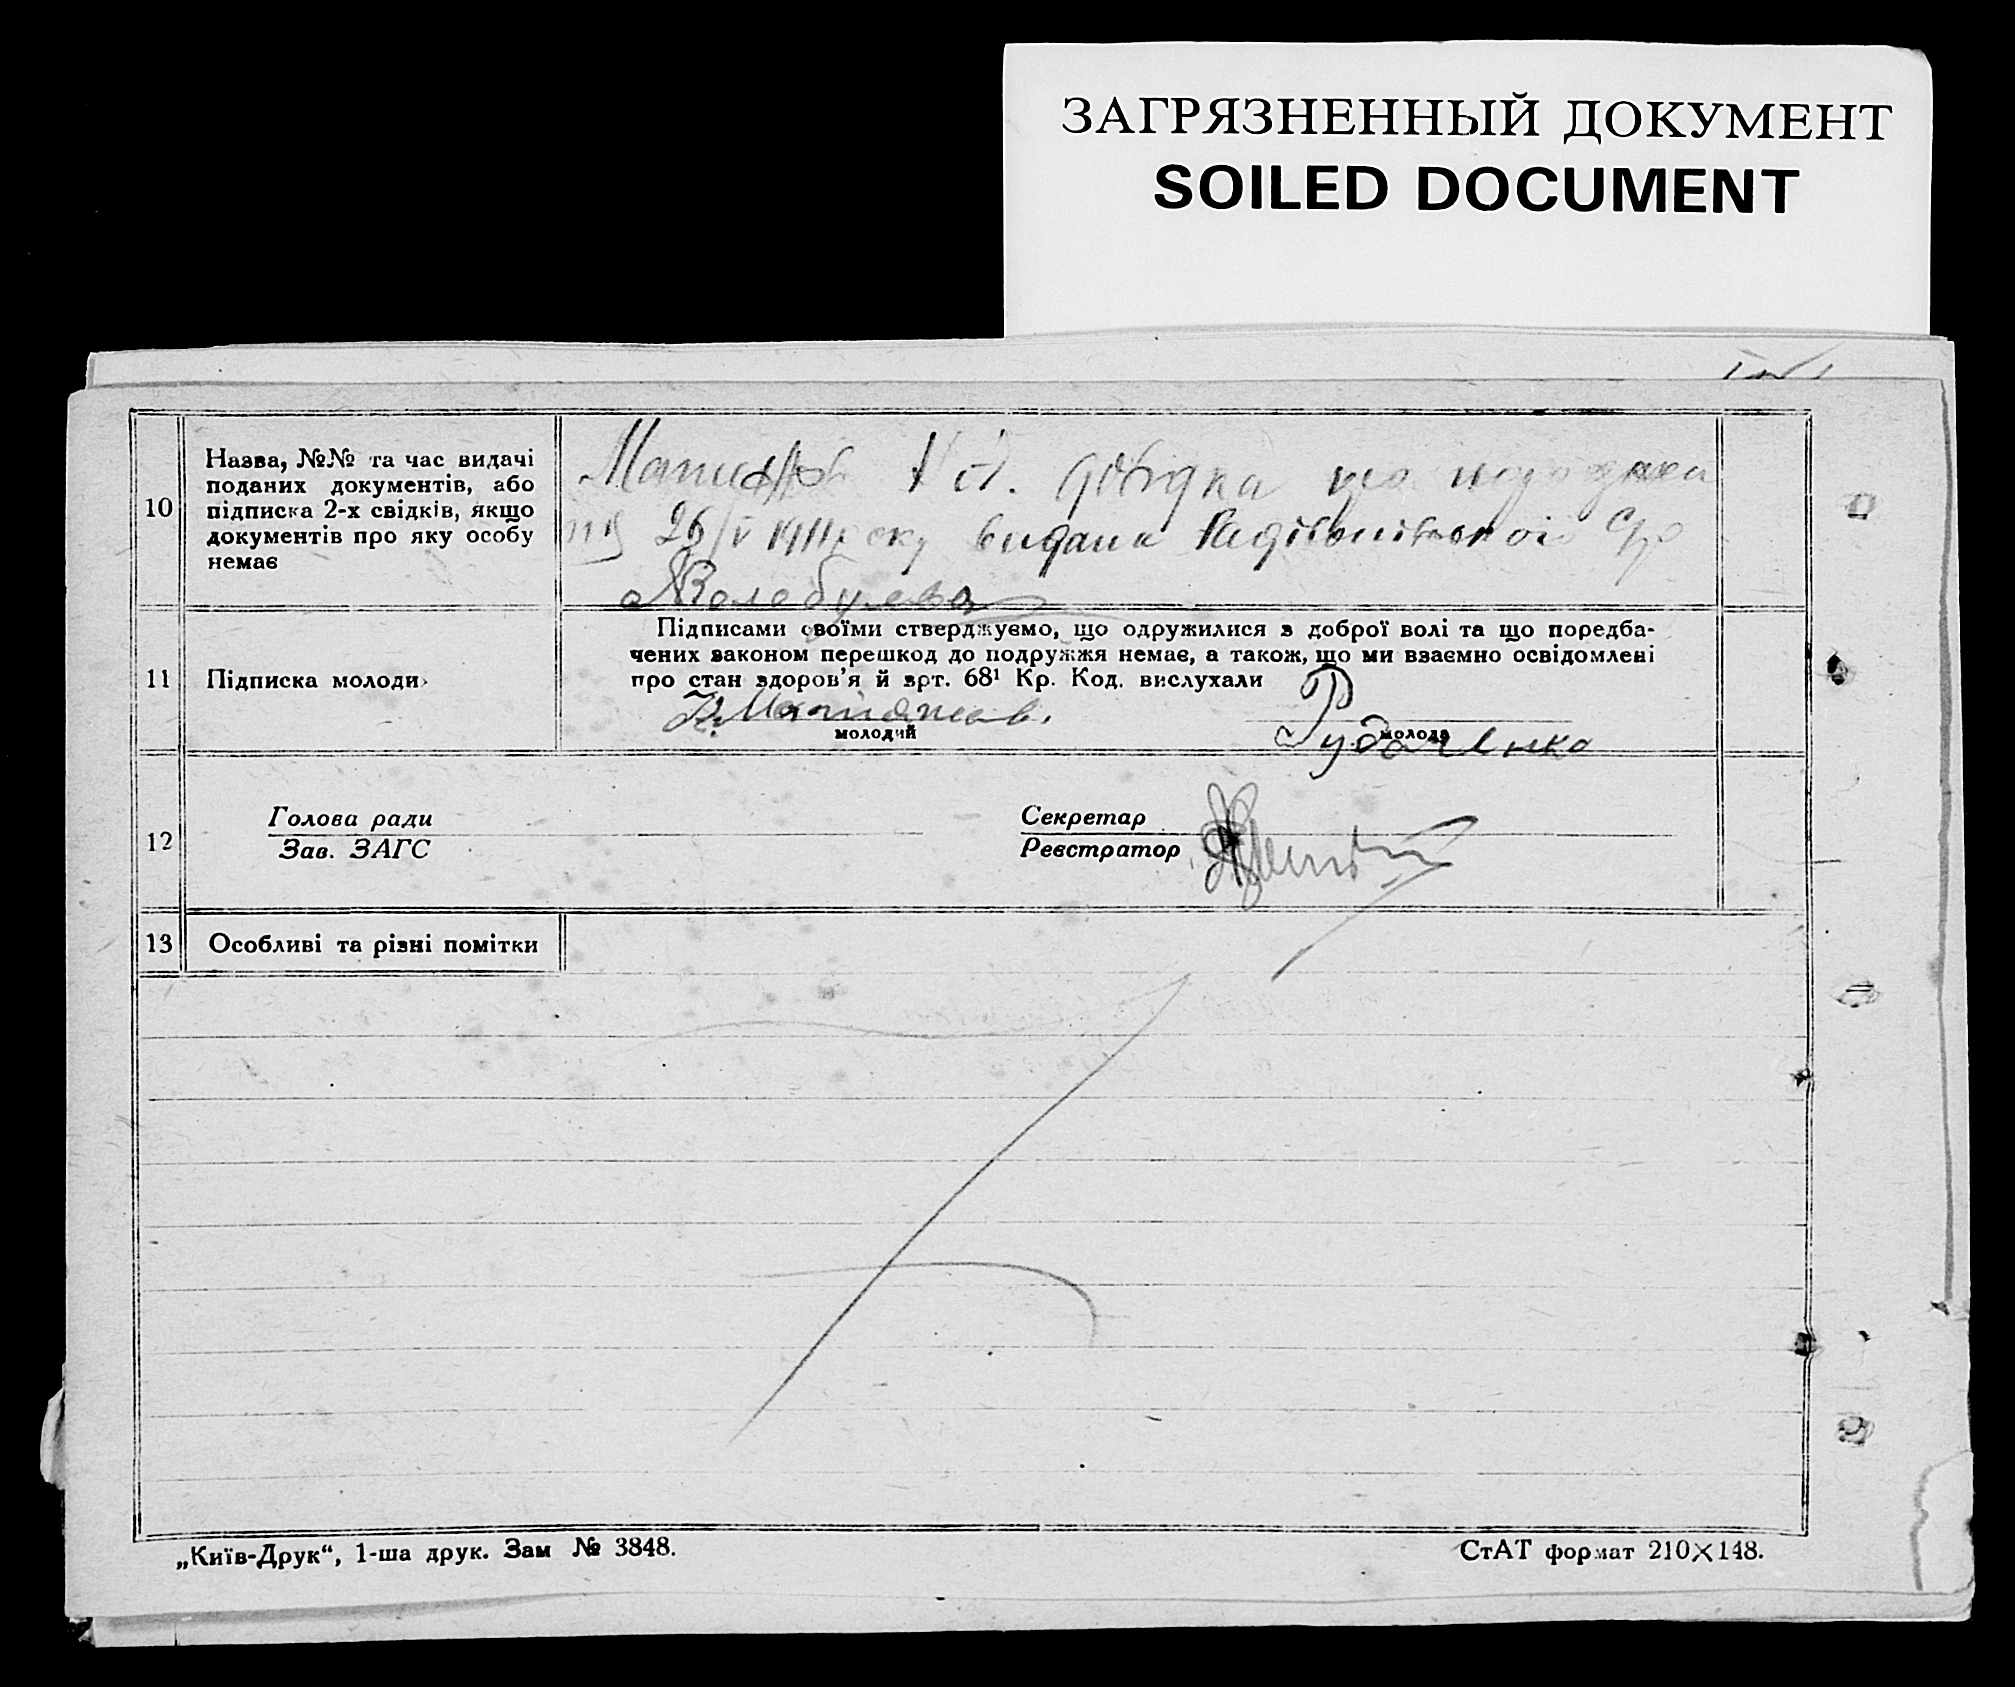 ЗАГРЯЗНЕННЫЙ ДОКУМЕНТ
SOILED DOCUMENT
10
Назва, №№ та час видачі
поданих документів, або
підписка 2-х свідків, якщо
документів про яку особу
немає
довідка про
від 26/V видана
11
Підписка молоди
Підписами своїми стверджуємо, що одружилися з доброї волі та що поредба-
чених законом перешкод до подружжя немає, а також, що ми взаємно освідомлені
про стан здоров'я й арт. 68¹ Кр. Код. вислухали
молодий
молода
Рудаченко
12
Голова ради
Зав. ЗАГС
Секретар
Реєстратор
13
Особливі та різні помітки
„Київ-Друк“, 1-ша друк. Зам № 3848.
СтАТ формат 210×148.